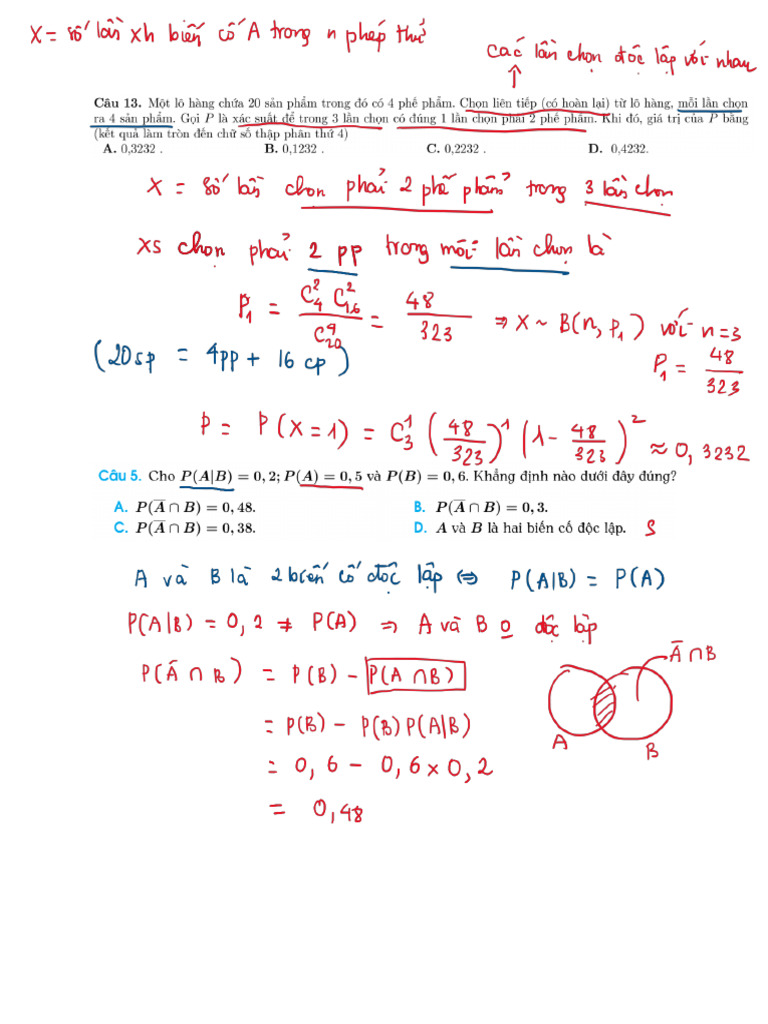 X = số lần xh biến cố A trong n phép thử
các lần chọn độc lập với nhau
Câu 13. Một lô hàng chứa 20 sản phẩm trong đó có 4 phế phẩm. Chọn liên tiếp (có hoàn lại) từ lô hàng, mỗi lần chọn
ra 4 sản phẩm. Gọi P là xác suất để trong 3 lần chọn có đúng 1 lần chọn phải 2 phế phẩm. Khi đó, giá trị của P bằng
(kết quả làm tròn đến chữ số thập phân thứ 4)
A. 0,3232 . B. 0,1232 . C. 0,2232 . D. 0,4232.
X = số lần chọn phải 2 phế phẩm trong 3 lần chọn
XS chọn phải 2 pp trong mỗi lần chọn là
P₁ = C₄² C₁₆² / C₂₀⁴ = 48/323 ⇒ X ~ B(n, P₁) với n=3
(20sp = 4pp + 16 cp) P₁ = 48/323
P = P(X=1) = C₃¹ (48/323)¹ (1 - 48/323)² ≈ 0,3232
Câu 5. Cho P(A|B) = 0,2; P(A) = 0,5 và P(B) = 0,6. Khẳng định nào dưới đây đúng?
A. P(A̅ ∩ B) = 0,48. B. P(A̅ ∩ B) = 0,3.
C. P(A̅ ∩ B) = 0,38. D. A và B là hai biến cố độc lập. S
A và B là 2 biến cố độc lập ⇔ P(A|B) = P(A)
P(A|B) = 0,2 ≠ P(A) ⇒ A và B o độc lập
P(A̅ ∩ B) = P(B) - P(A ∩ B) A̅ ∩ B
= P(B) - P(B) P(A|B)
A B
= 0,6 - 0,6 × 0,2
= 0,48